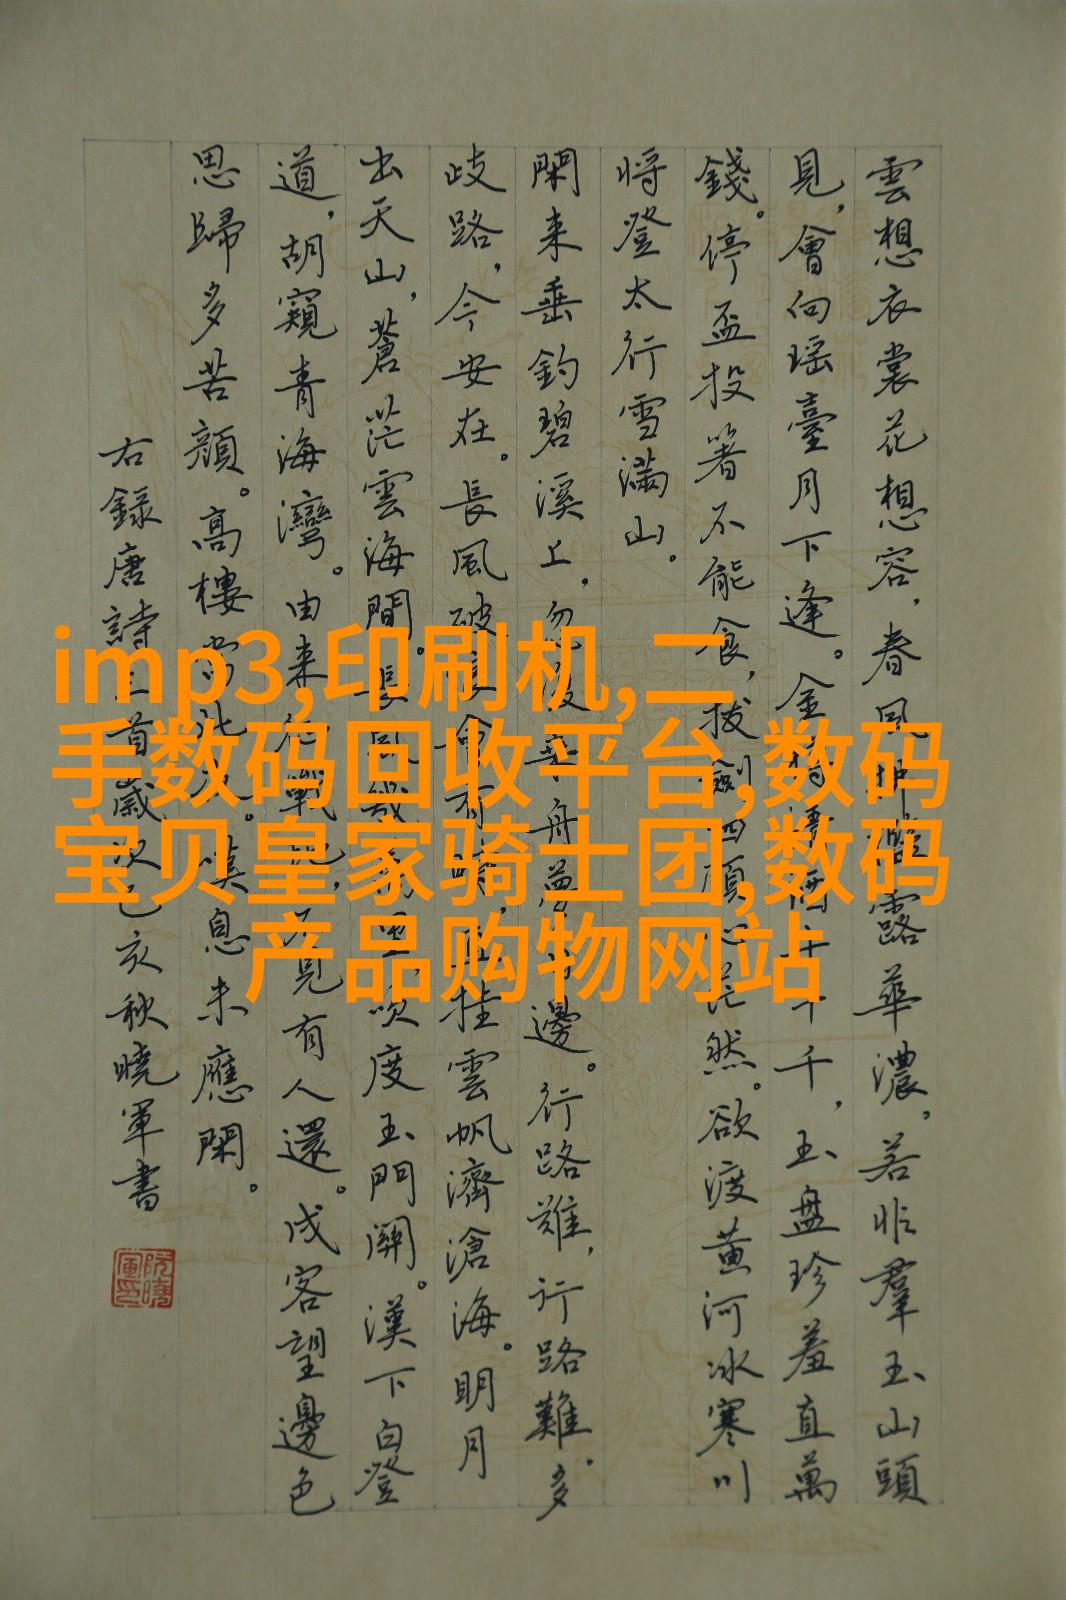 雲想衣裳花想容，春風拂檻露華濃。若非羣玉山頭
見，會向瑶臺月下逢。金樽清酒斗十千，玉盤珍羞直萬
錢。停盃投箸不能食，拔劍四顧心茫然。欲渡黄河冰寒川
将登太行雪滿山。
閑来垂釣碧溪上，忽復乘舟夢日邊。行路難，行路難。多
歧路，今安在。長風破浪會有時，直挂雲帆濟滄海。明月
出天山，蒼茫雲海間。長風幾萬里，吹度玉門關。漢下白登
道，胡窺青海灣。由来征戰地，不見有人還。戍客望邊色
思歸多苦顔。高樓當此夜。嘆息未應閑。
右録唐詩三首歲次己亥秋曉軍書
阮曉軍印
imp3,印刷机,二
手数码回收平台,数码
宝贝皇家骑士团,数码
产品购物网站